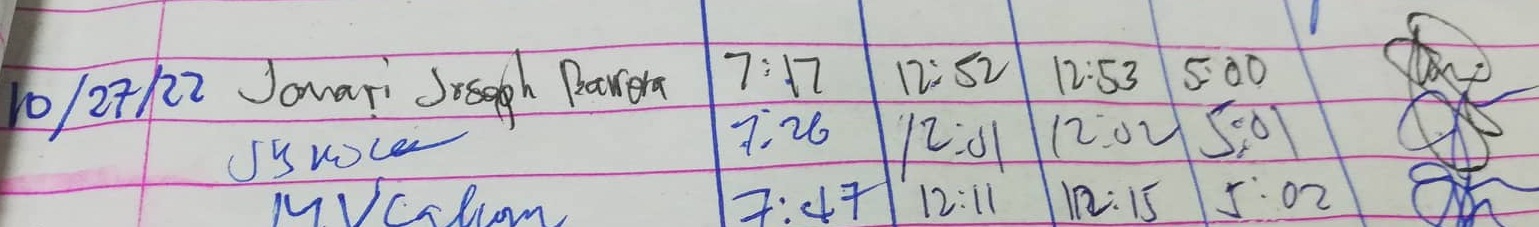 10/27/22 Jomari Joseph Barrera 7:17 12:52 12:53 5:00
7:26 12:01 12:02 5:01
7:47 12:11 12:15 5:02